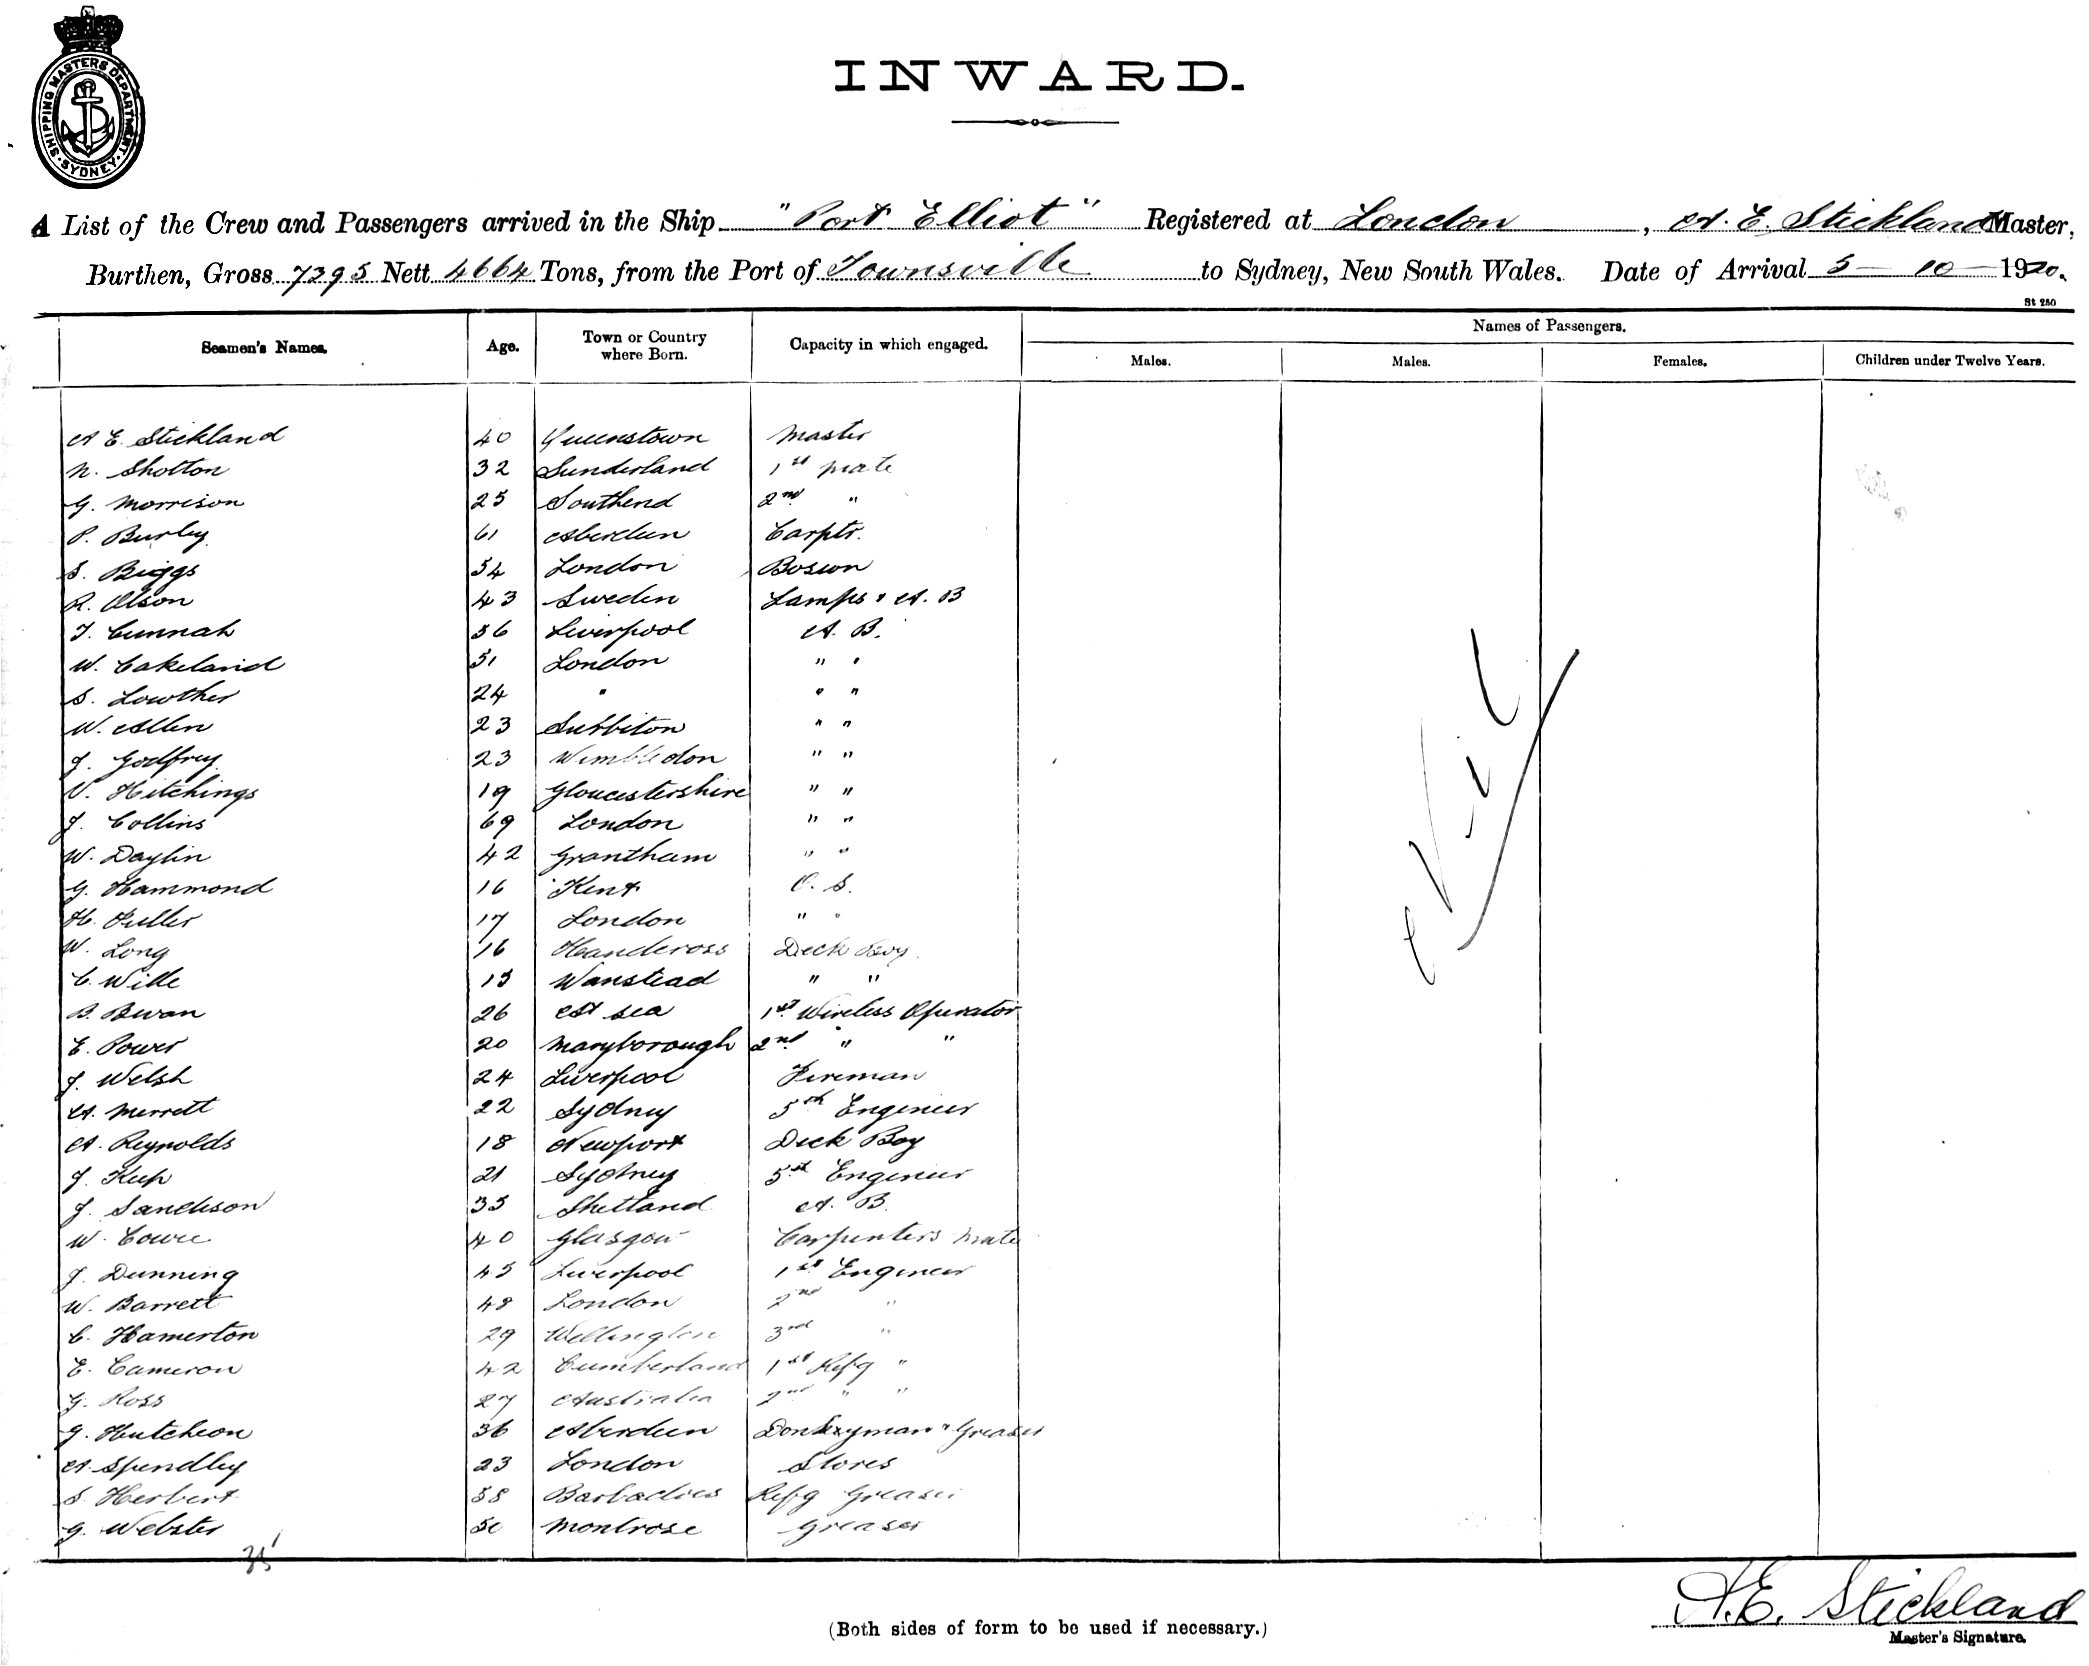 SHIPPING MASTERS DEPARTMENT · SYDNEY ·
INWARD.
A List of the Crew and Passengers arrived in the Ship "Port Elliot" Registered at London, A. E. Stickland Master,
Burthen, Gross 7395 Nett 4664 Tons, from the Port of Townsville to Sydney, New South Wales. Date of Arrival 5 - 10 - 1920.
St 250
Seamen's Names. Age. Town or Country where Born. Capacity in which engaged. Names of Passengers.
Males. Males. Females. Children under Twelve Years.
A E. Stickland 40 Queenstown Master
N. Shotton 32 Sunderland 1st Mate
G. Morrison 25 Southend 2nd "
P. Burley 61 Aberdeen Carptr.
S. Biggs 54 London Bosun
R. Olson 43 Sweden Lamps & A. B
T. Cunnah 56 Liverpool A. B.
W. Cakeland 51 London " "
S. Lowther 24 " " "
W. Allen 23 Surbiton " "
J. Godfrey 23 Wimbledon " "
V. Hitchings 19 Gloucestershire " "
J. Collins 69 London " "
W. Daylin 42 Grantham " "
G. Hammond 16 Kent O. S.
H. Fuller 17 London " "
W. Long 16 Handcross Deck Boy
C. Wille 15 Wanstead " "
B. Bevan 26 At sea 1st Wireless Operator
E. Power 20 Maryborough 2nd " "
J. Welsh 24 Liverpool Fireman
A. Merrett 22 Sydney 5th Engineer
A. Reynolds 18 Newport Deck Boy
J. Keep 21 Sydney 5th Engineer
J. Sandison 35 Shetland A. B.
W. Cowie 40 Glasgow Carpenters Mate
J. Dunning 45 Liverpool 1st Engineer
W. Barrett 48 London 2nd "
C. Hamerton 29 Wellington 3rd "
E. Cameron 42 Cumberland 1st Refg "
G. Ross 27 Australia 2nd " "
G. Hutcheon 36 Aberdeen Donkeyman & Greaser
A. Spendley 23 London Stores
S. Herbert 58 Barbadoes Refg Greaser
G. Webster 50 Montrose Greaser
35
Nil
A.E. Stickland
(Both sides of form to be used if necessary.)
Master's Signature.